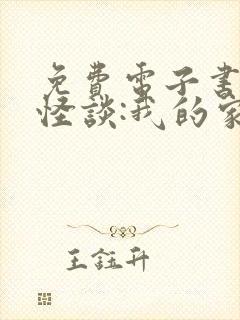 免費電子書
怪談:我的家
王鈺升